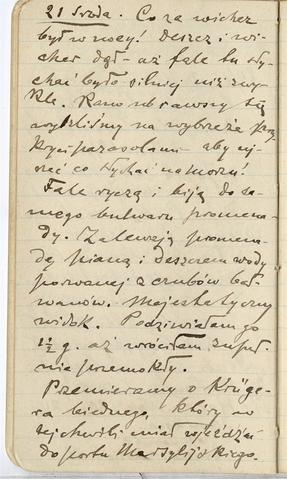 21 Środa. Co za wicher
był w nocy! Deszcz i wi-
cher dął - aż fale tu sły-
chać było silniej niż zwy-
kle. Rano ubrawszy się
wyszliśmy na wybrzeże przy-
kryci parasolami - aby uj-
rzeć co słychać na morzu!
Fale ryczą i biją do sa-
mego bulwaru promena-
dy. Zalewają promena-
dę pianą i deszczem wody
porwanej z czubów bał-
wanów. Majestatyczny
widok. Podziwiałam go
1½ g. aż wróciłam zupeł-
nie przemokły.
Przemieramy o Krüge-
ra biednego, który w
tej chwili miał wjeżdżać
do portu Marsylijskiego.